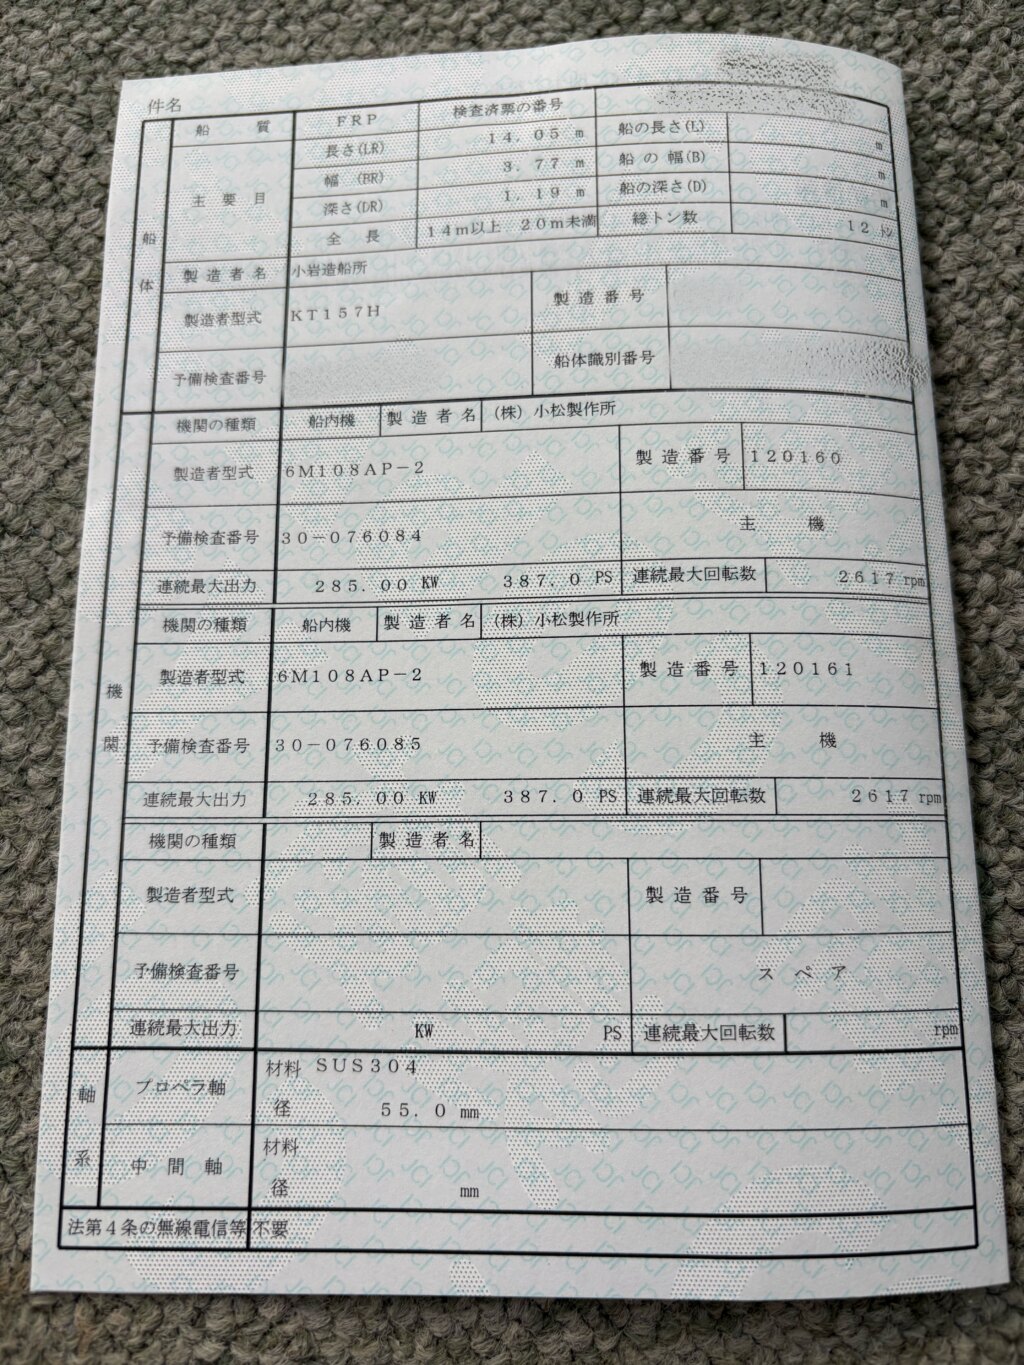 件名
船質 FRP 検査済票の番号
船体
主要目 長さ(LR) 14.05 m 船の長さ(L) m
幅 (BR) 3.77 m 船の幅(B) m
深さ(DR) 1.19 m 船の深さ(D) m
全長 14m以上 20m未満 総トン数 12 トン
製造者名 小岩造船所
製造者型式 KT157H 製造番号
予備検査番号 船体識別番号
機関
機関の種類 船内機 製造者名 (株)小松製作所
製造者型式 6M108AP-2 製造番号 120160
予備検査番号 30-076084 主機
連続最大出力 285.00 KW 387.0 PS 連続最大回転数 2617 rpm
機関の種類 船内機 製造者名 (株)小松製作所
製造者型式 6M108AP-2 製造番号 120161
予備検査番号 30-076085 主機
連続最大出力 285.00 KW 387.0 PS 連続最大回転数 2617 rpm
機関の種類 製造者名
製造者型式 製造番号
予備検査番号 スペア
連続最大出力 KW PS 連続最大回転数 rpm
軸系
プロペラ軸 材料 SUS304
径 55.0 mm
中間軸 材料
径 mm
法第4条の無線電信等 不要